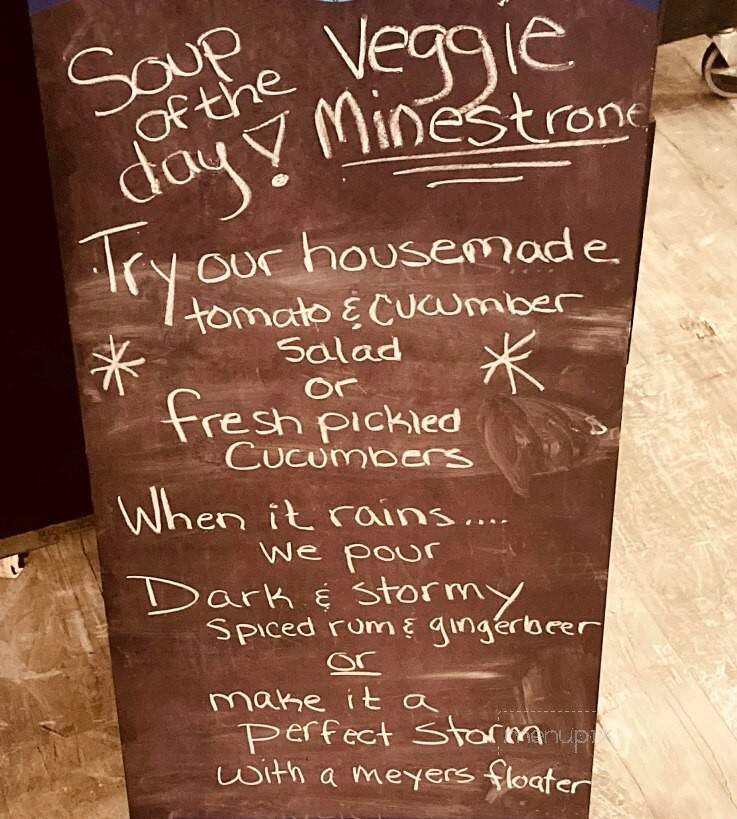 Soup of the day!
Veggie Minestrone
Try our housemade
tomato & cucumber
Salad
or
fresh pickled
Cucumbers
When it rains....
we pour
Dark & stormy
Spiced rum & gingerbeer
or
make it a
perfect storm
with a meyers floater
menupix